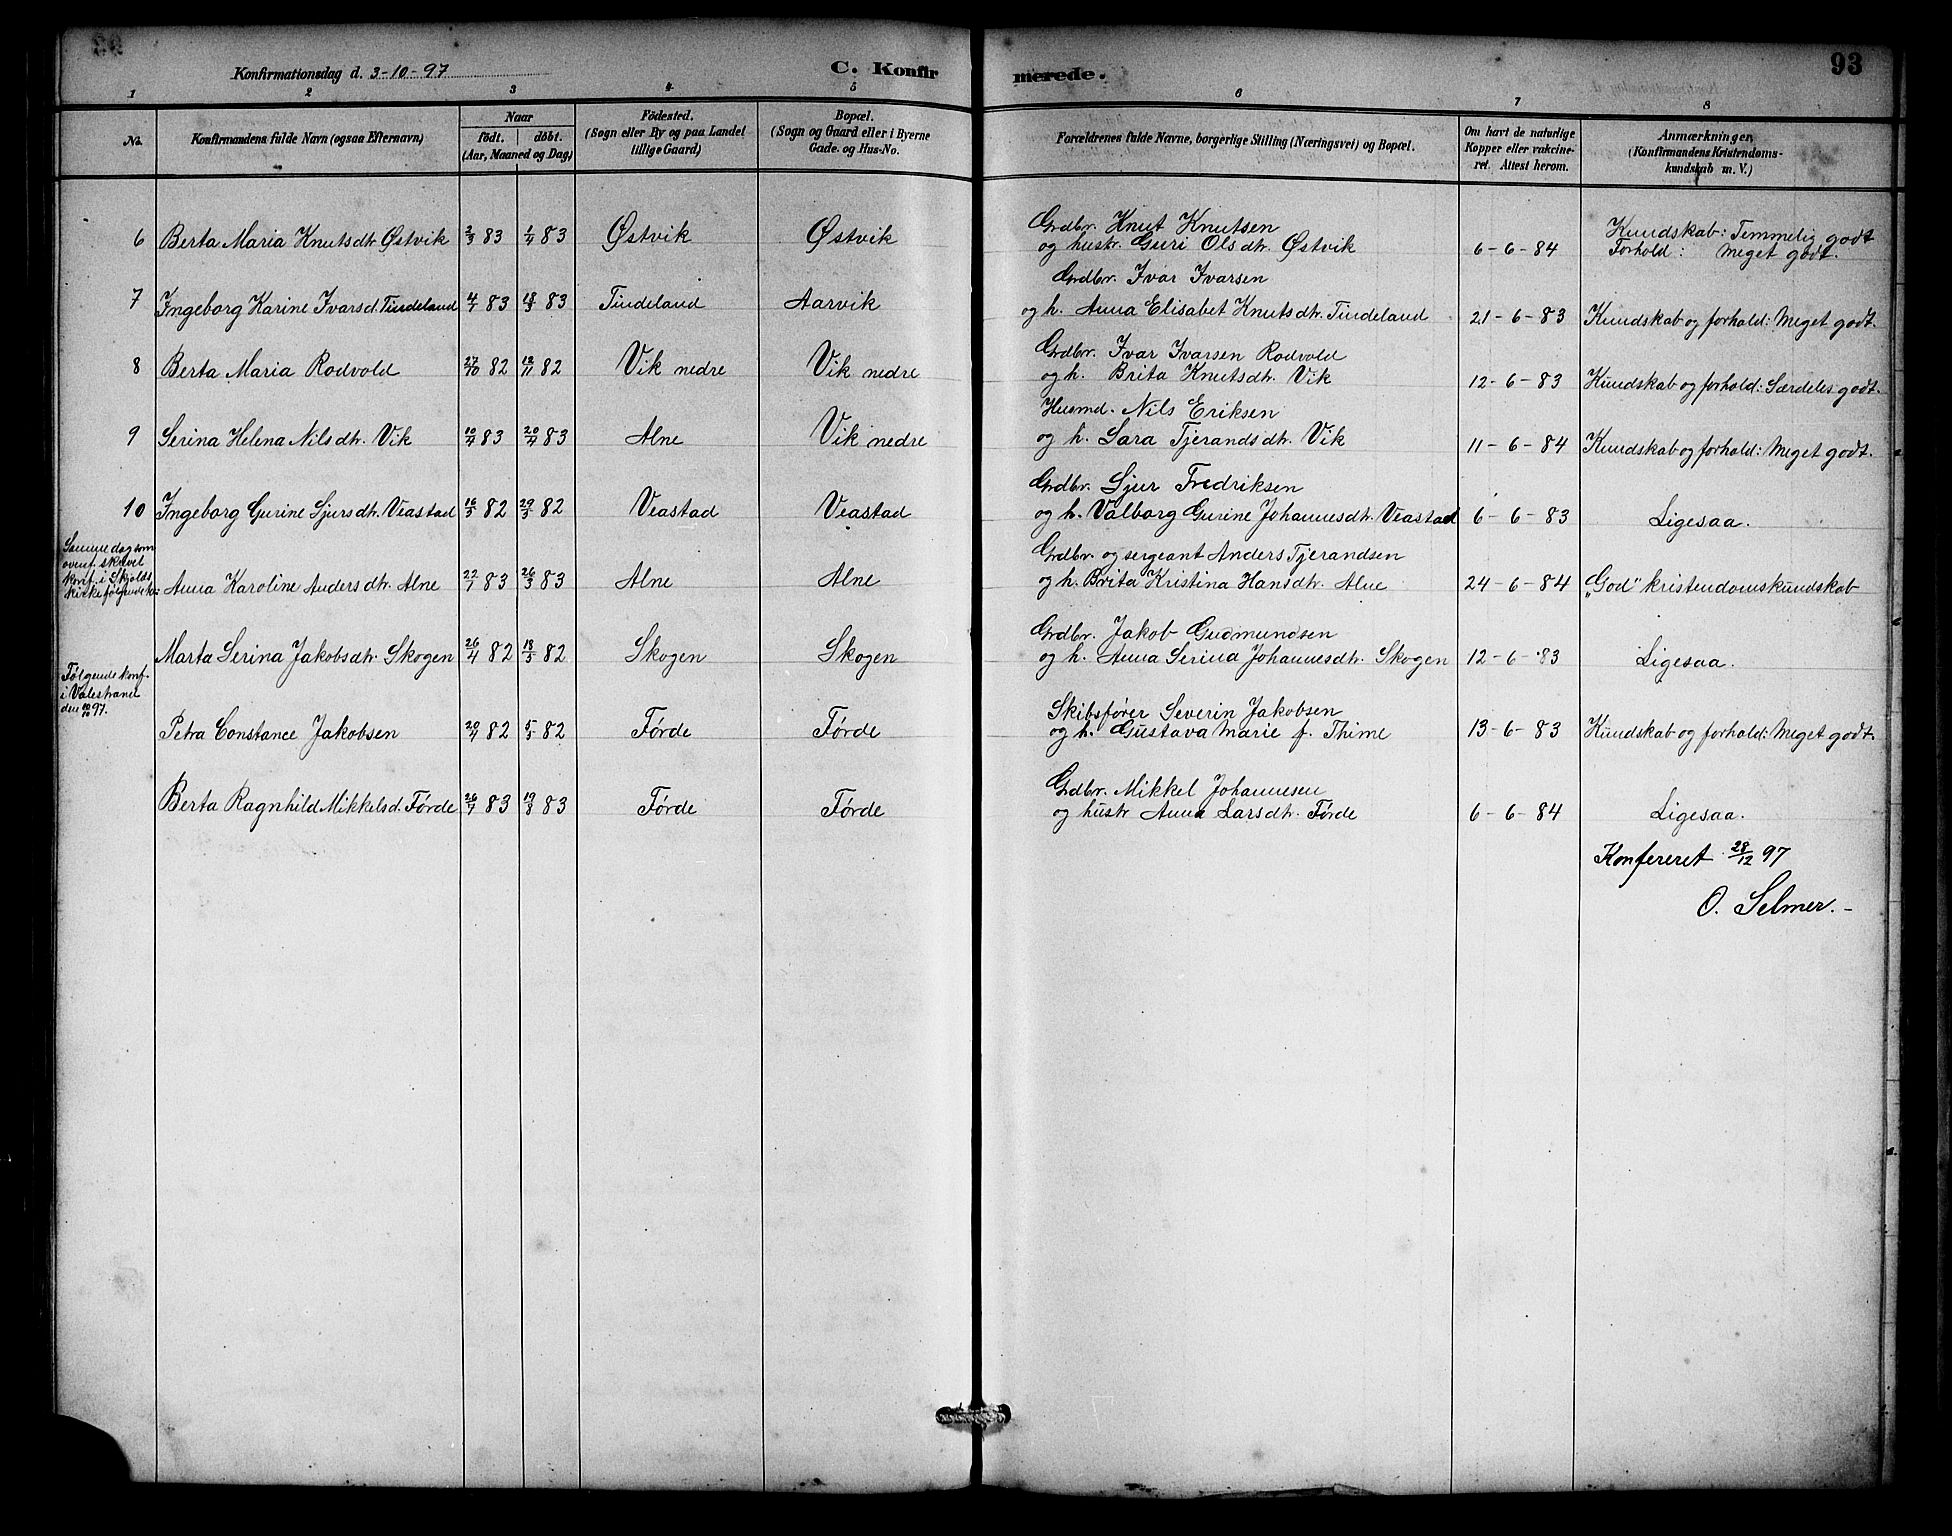 Konfirmationsdag d. 3-10-97
C. Konfirmerede.
93
1 2 3 4 5 6 7 8
No.
Konfirmandens fulde Navn (ogsaa Efternavn)
Naar
født. døbt.
(Aar, Maaned og Dag)
Fødested.
(Sogn eller By og paa Landet
tillige Gaard)
Bopæl.
(Sogn og Gaard eller i Byerne
Gade. og Hus-No.
Forældrenes fulde Navne, borgerlige Stilling (Næringsvei) og Bopæl.
Om havt de naturlige
Kopper eller vakcine-
ret. Attest herom.
Anmærkninger.
(Konfirmandens Kristendoms-
kundskab m. V.)
6 Berta Maria Knutsdtr. Østvik 2/3 83 1/4 83 Østvik Østvik
Grdbr. Knut Knutsen
og hustr. Guri Olsdtr. Østvik 6-6-84
Kundskab: Temmelig godt
Forhold: Meget godt.
7 Ingeborg Karine Ivarsd. Tindeland 83 83 Tindeland Aarvik
Grdbr. Ivar Ivarsen
og h. Anna Elisabet Knutsdtr. Tindeland 21-6-83 Kundskab og forhold: Meget godt.
8 Berta Maria Rodvold 27/10 82 82 Vik nedre Vik nedre
Grdbr. Ivar Ivarsen Rodvold
og h. Brita Knutsdtr. Vik 12-6-83 Kundskab og forhold: Særdeles godt.
9 Serina Helena Nilsdtr. Vik 83 83 Alne Vik nedre
Husmd. Nils Eriksen
og h. Sara Tjerandsdtr. Vik 11-6-84 Kundskab og forhold: Meget godt.
10 Ingeborg Gurine Sjursdtr. Veastad 16/3 82 29/3 82 Veastad Veastad
Grdbr. Sjur Fredriksen
og h. Valborg Gurine Johannesdtr. Veastad 6-6-83 Ligesaa.
Samme dag som
ovenf. skrevet
konf. i Skjolds
kirke følgende to:
Anna Karoline Andersdtr. Alne 22/1 83 26/3 83 Alne Alne
Grdbr. og sergeant Anders Tjerandsen
og h. Brita Kristina Hansdtr. Alne 24-6-84 "God" kristendomskundskab
Marta Serina Jakobsdtr. Skogen 26/4 82 18/5 82 Skogen Skogen
Grdbr. Jakob Gudmundsen
og h. Anna Serina Johannesdtr. Skogen 12-6-83 Ligesaa.
Følgende konf.
i Valestrand
den 10/10 97.
Petra Constance Jakobsen 82 82 Førde Førde
Skibsfører Severin Jakobsen
og h. Gustava Marie f. Thime 13-6-83 Kundskab og forhold: Meget godt.
Berta Ragnhild Mikkelsd. Førde 26/7 83 19/8 83 Førde Førde
Grdbr. Mikkel Johannesen
og hustr Anna Larsdtr. Førde 6-6-84 Ligesaa.
Konfereret 28/12 97
O. Selmer.-